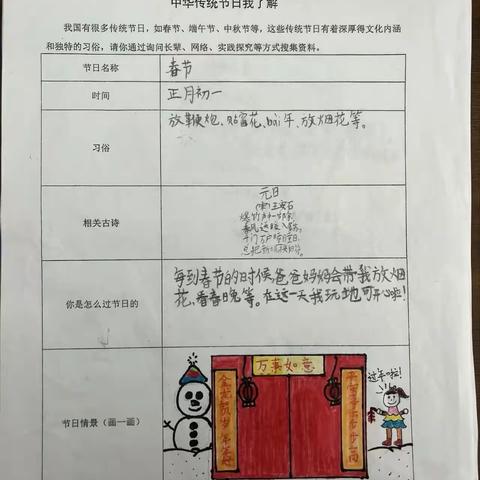 中华传统节日我了解
我国有很多传统节日，如春节、端午节、中秋节等，这些传统节日有着深厚得文化内涵
和独特的习俗，请你通过询问长辈、网络、实践探究等方式搜集资料。
节日名称
春节
时间
正月初一
习俗
放鞭炮、贴窗花、bài年、放烟花等。
相关古诗
元日
(宋)王安石
爆竹声中一岁除
春风送暖入屠苏
千门万户曈曈日
总把新桃换旧符
你是怎么过节日的
每到春节的时候，爸爸妈妈会带我放烟
花，看春晚等。在这一天我玩地可开心啦！
节日情景（画一画）
万事如意
过年啦！